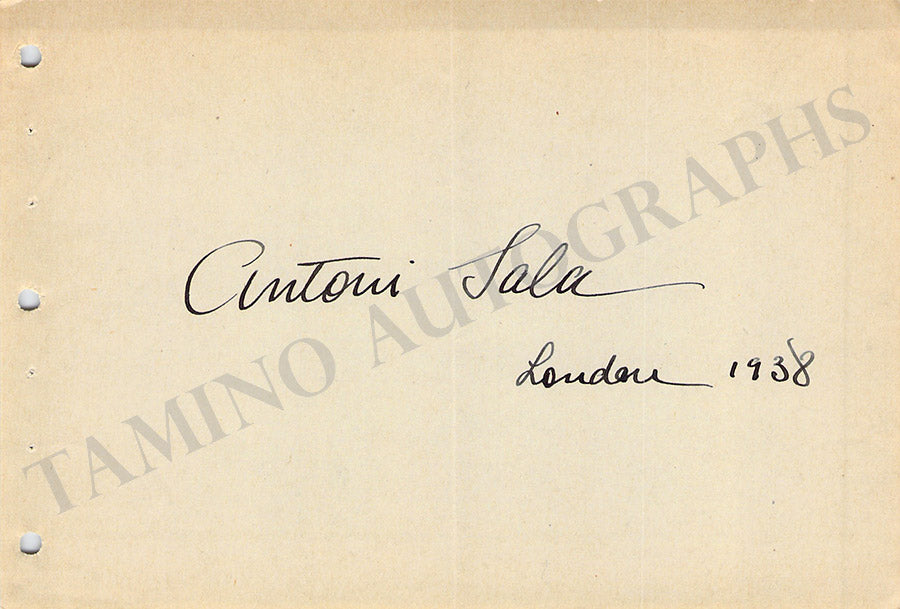 Antoni Sala
London 1938
TAMINO AUTOGRAPHS